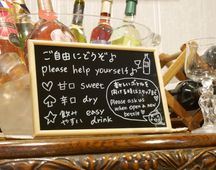 ご自由にどうぞ♪
please help yourself♪
♡ 甘口 sweet
♤ 辛口 dry
☆ 飲み easy
やすい drink
新しいボトルを
開ける時はスタッフまで
Please ask us
when open a new
bottle